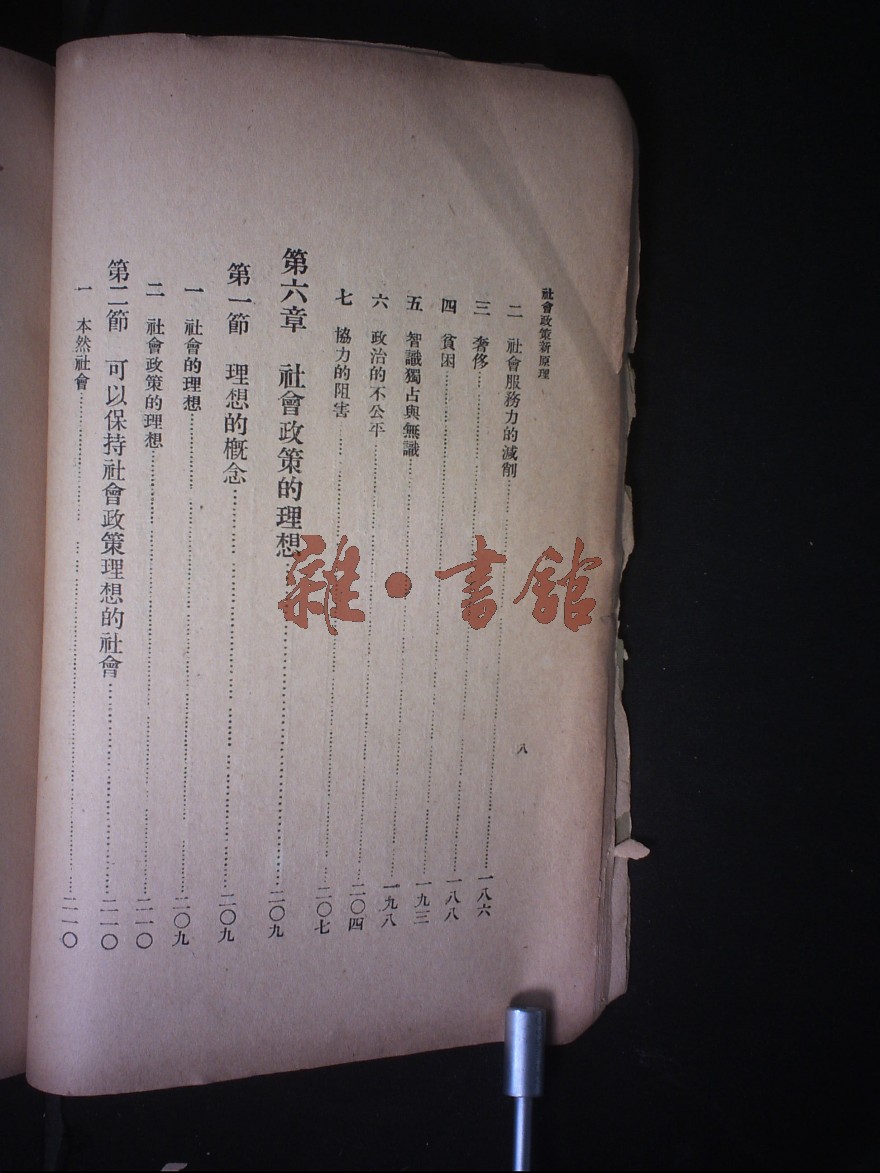 社會政策新原理
八
二　社會服務力的減削……一八六
三　奢侈……一八八
四　貧困……一九三
五　智識獨占與無識……一九八
六　政治的不公平……二〇四
七　協力的阻害……二〇七
第六章　社會政策的理想……二〇九
第一節　理想的概念……二〇九
一　社會的理想……二〇九
二　社會政策的理想……二一〇
第二節　可以保持社會政策理想的社會……二一〇
一　本然社會……二一〇
雜·書館